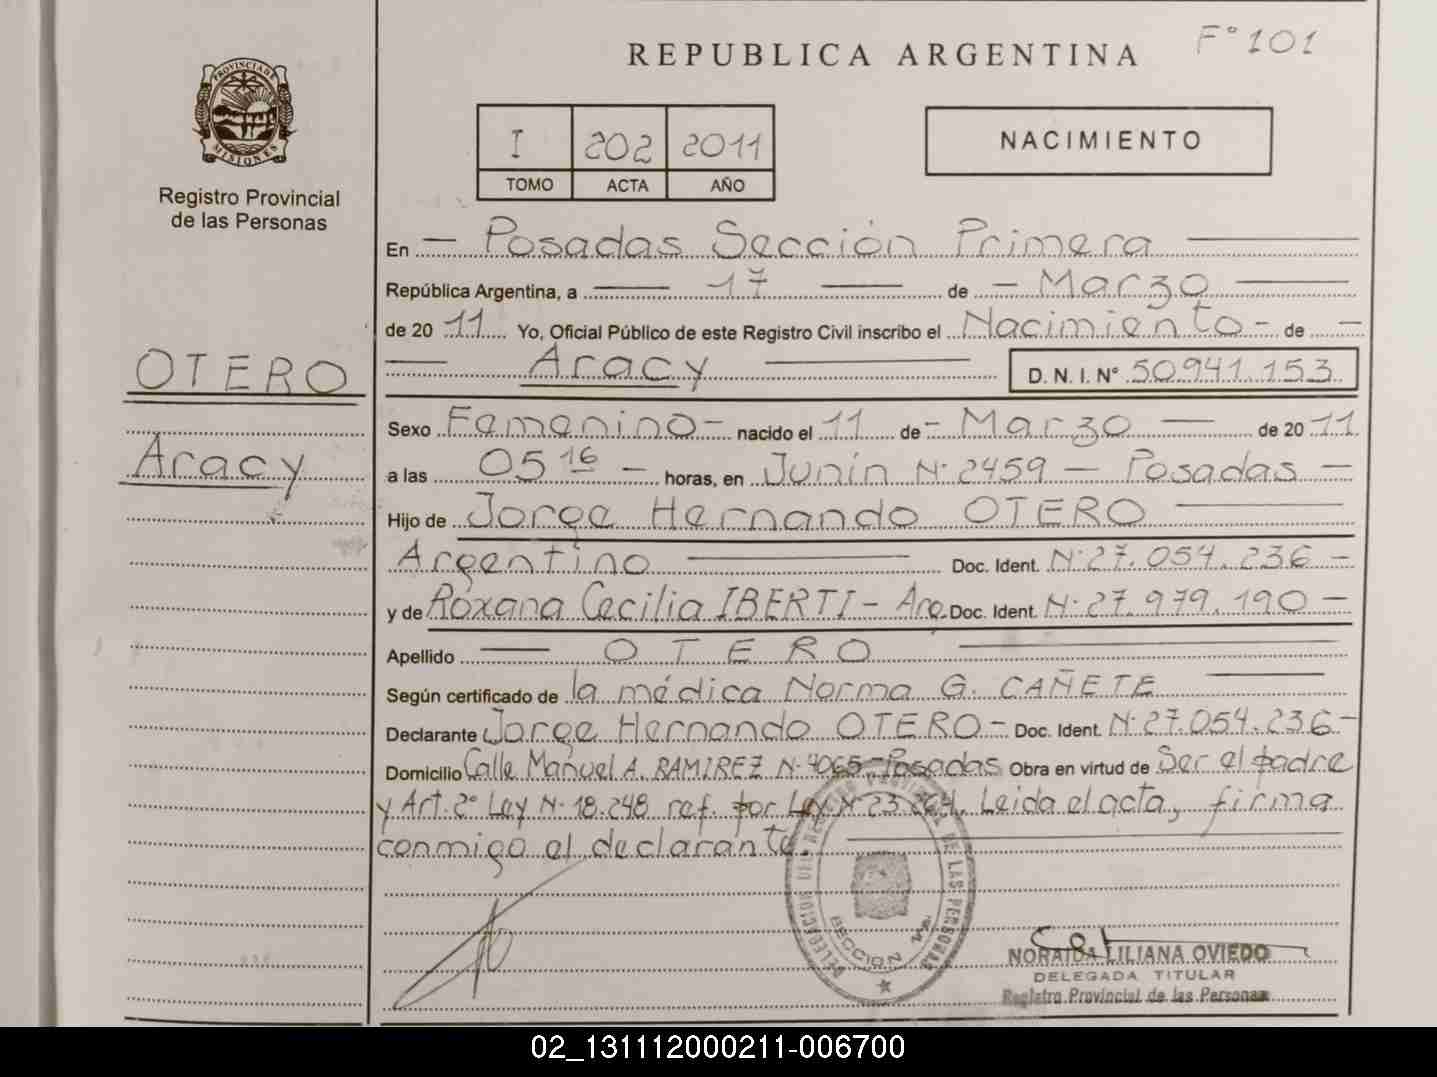 F° 101
REPUBLICA ARGENTINA
PROVINCIA DE
MISIONES
Registro Provincial
de las Personas
I 202 2011
TOMO ACTA AÑO
NACIMIENTO
En — Posadas Sección Primera —
República Argentina, a — 17 — de — Marzo —
de 2011 Yo, Oficial Público de este Registro Civil inscribo el Nacimiento - de —
— Aracy — D. N. I. N° 50.941.153
OTERO
Aracy
Sexo Femenino — nacido el 11 de — Marzo — de 2011
a las 05 16 — horas, en Junín N° 2459 — Posadas —
Hijo de Jorge Hernando OTERO —
Argentino — Doc. Ident. N° 27.054.236 —
y de Roxana Cecilia IBERTI - Arg. Doc. Ident. N° 27.979.190 —
Apellido — OTERO —
Según certificado de la médica Norma G. CAÑETE —
Declarante Jorge Hernando OTERO — Doc. Ident. N° 27.054.236 —
Domicilio Calle Manuel A. RAMIREZ N° 4065 - Posadas Obra en virtud de Ser el padre
y Art. 2° Ley N° 18.248 ref. por Ley N° 23.264. Leida el acta, firma
conmigo el declarante. —
DELEGACION DEL REGISTRO PROVINCIAL DE LAS PERSONAS
SECCION 1ra.
NORAIDA LILIANA OVIEDO
DELEGADA TITULAR
Registro Provincial de las Personas
02_131112000211-006700